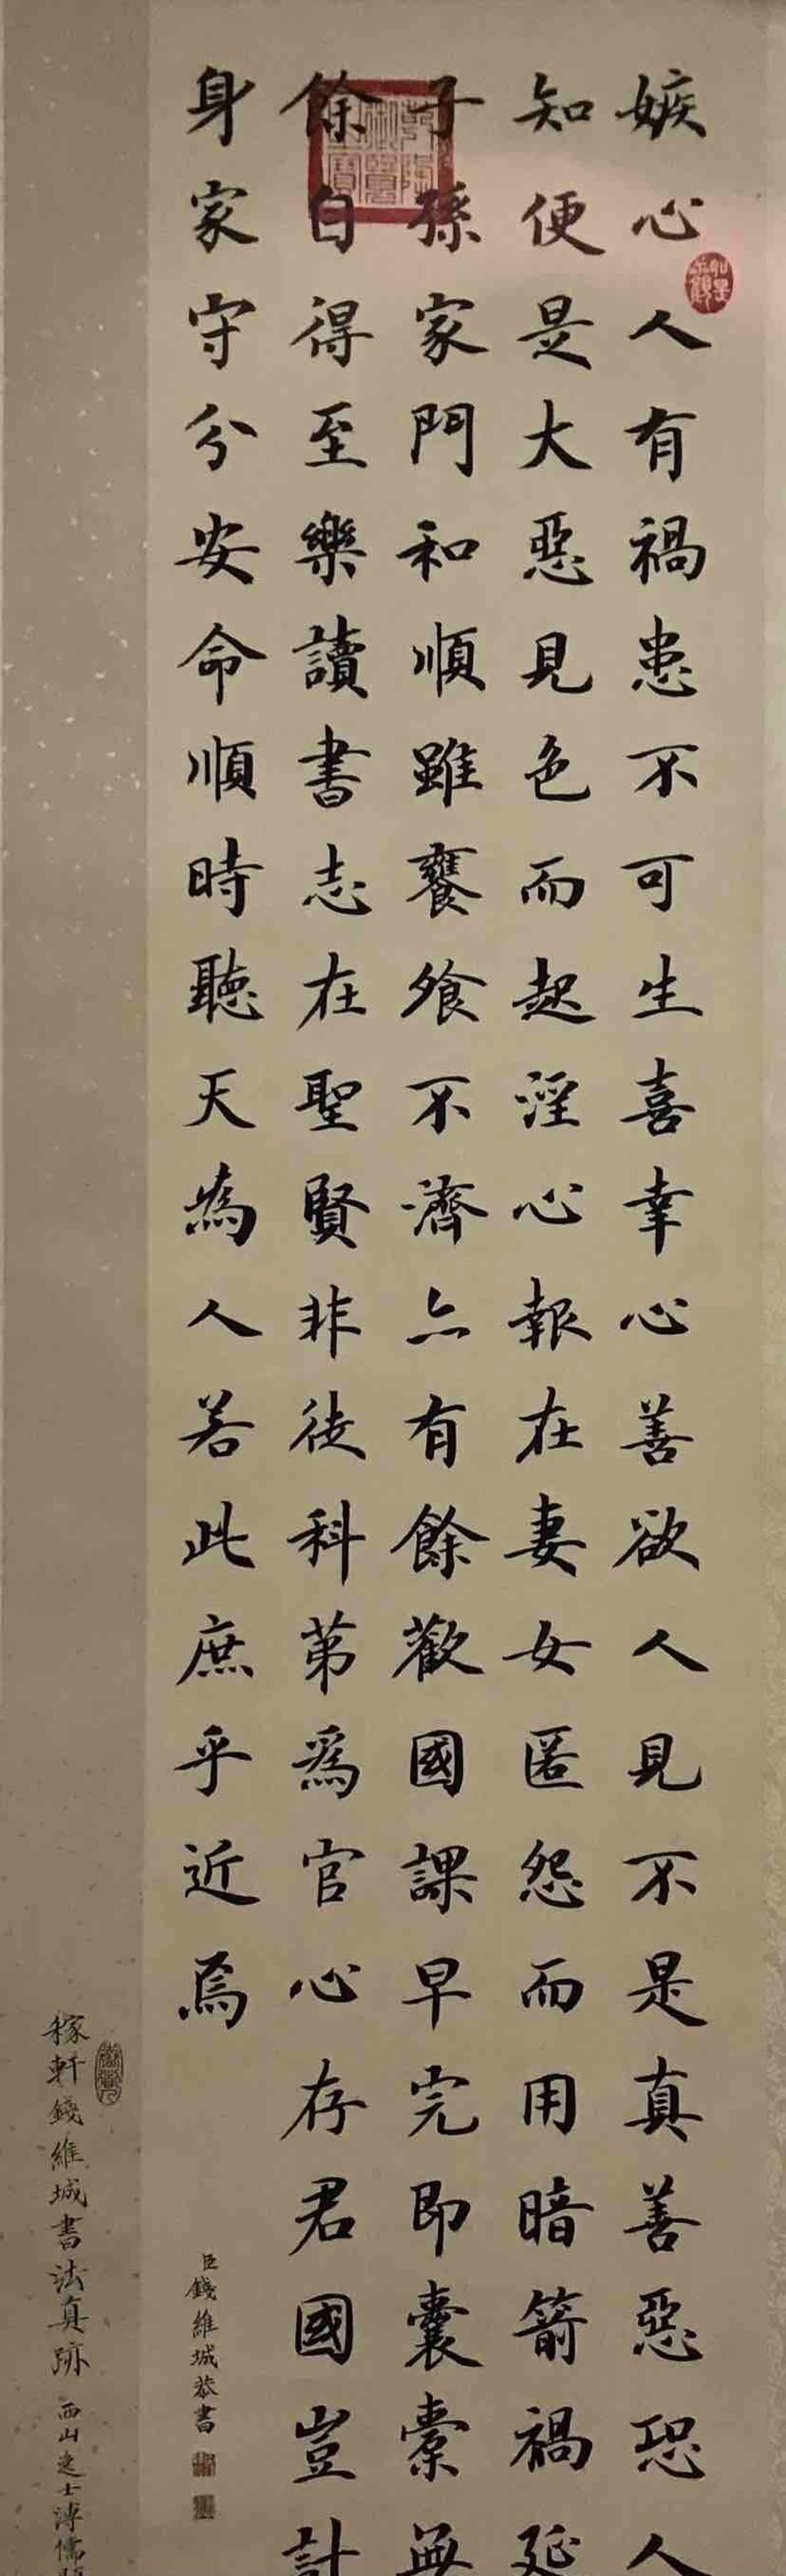 嫉心人有禍患不可生喜幸心善欲人見不是真善惡恐人
知便是大惡見色而起淫心報在妻女匿怨而用暗箭禍延
子孫家門和順雖饔飧不濟亦有餘歡國課早完即囊橐無
餘自得至樂讀書志在聖賢非徒科第爲官心存君國豈計
身家守分安命順時聽天為人若此庶乎近焉
臣錢維城恭書
稼軒錢維城書法真跡 西山逸士溥儒